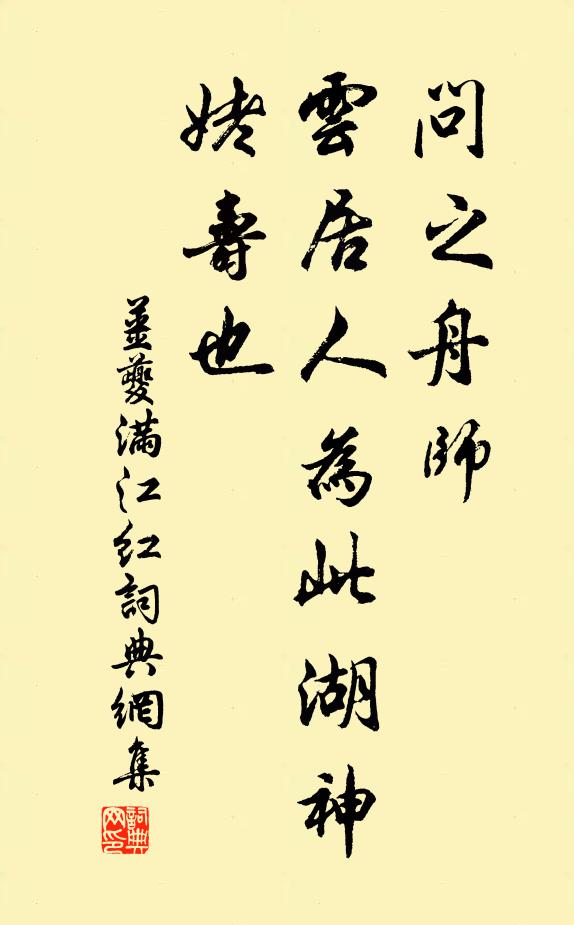 問之舟師
雲居人為此湖神
姥壽也
薑夔滿江紅詞典網集
詞典网印